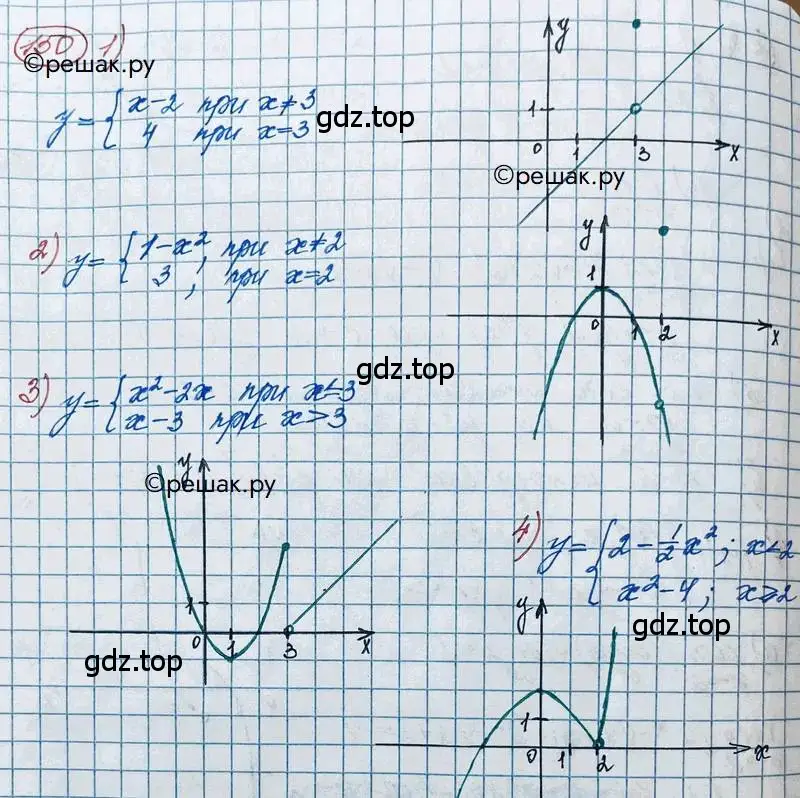 150 1)
©решак.ру
y = { x-2 при x≠3
4 при x=3
gdz.top
y
1
0 1 3 x
©решак.ру
2) y = { 1-x², при x≠2
3, при x=2
y
1
0 1 2 x
gdz.top
3) y = { x²-2x при x≤3
x-3 при x>3
y
©решак.ру
1
0 1 3 x
gdz.top
4) y = { 2-½x²; x<2
x²-4; x≥2
gdz.top
y
1
0 1 2 x